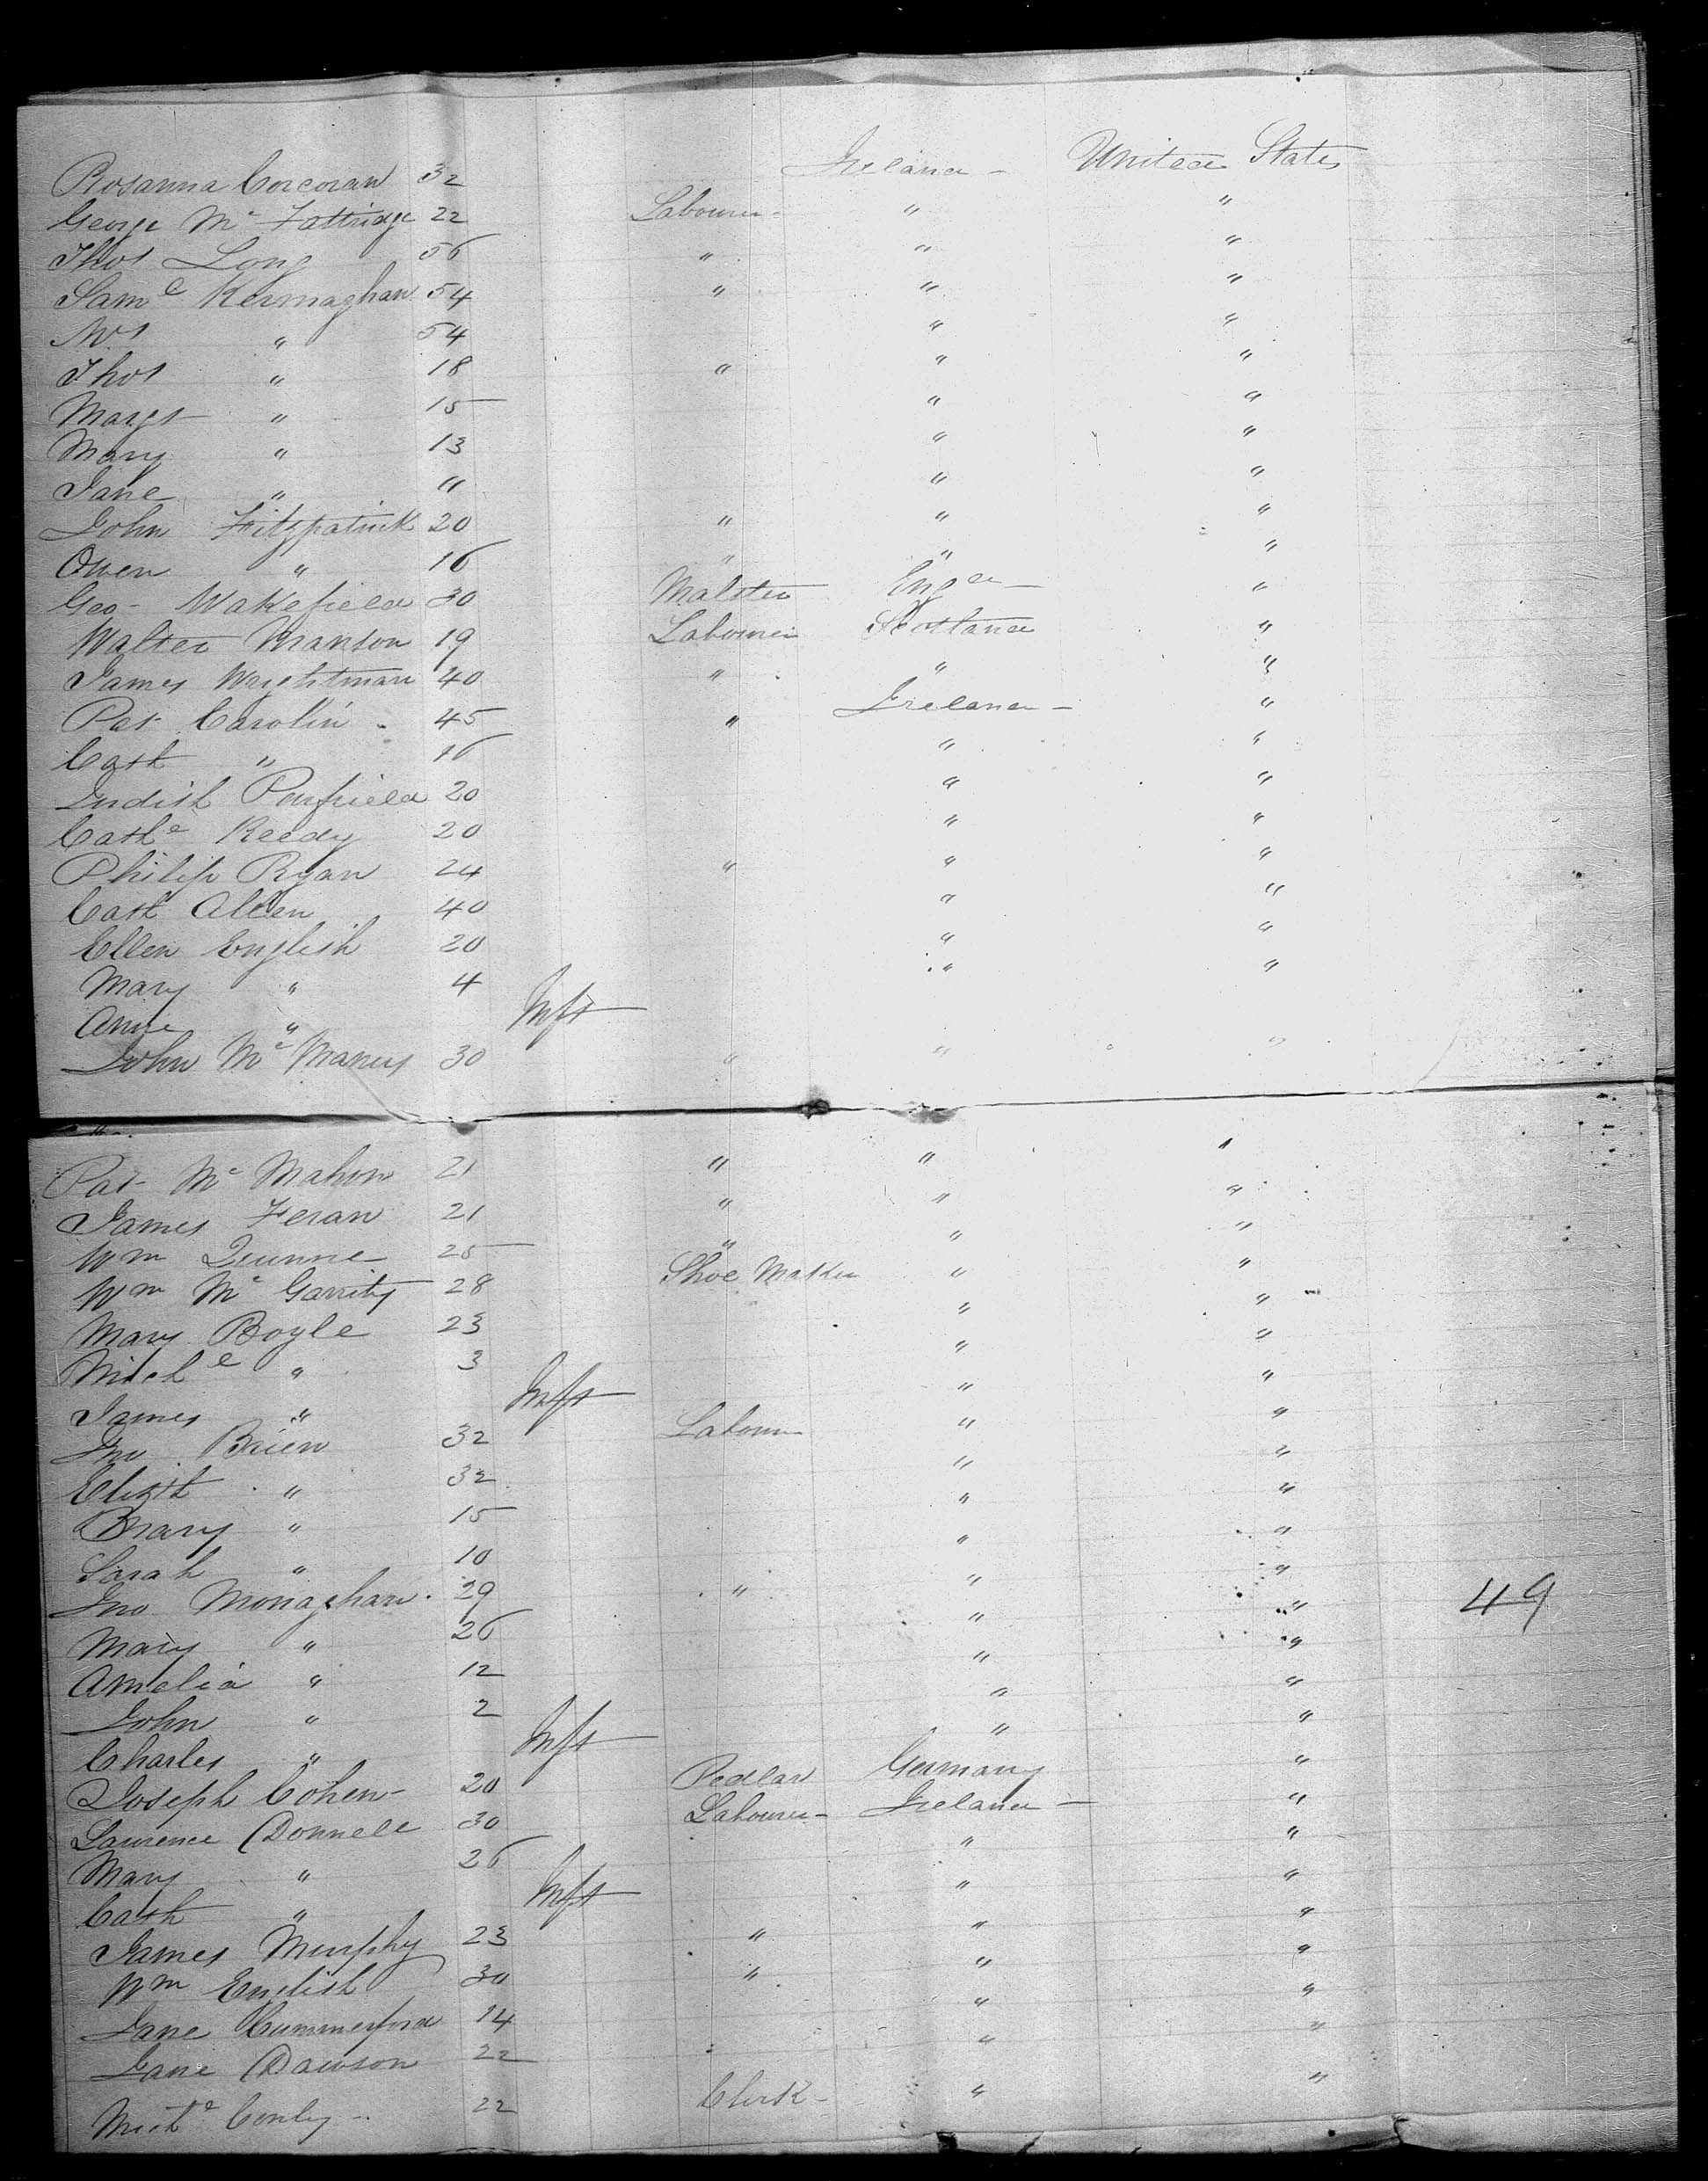 Rosanna Corcoran 32 Ireland - United States
George Mc Fattridge 22 Labourer " "
Thos Long 56 " " "
Saml Kernaghan 54 " " "
Mrs " 54 " "
Thos " 18 " " "
Margt " 15 " "
Mary " 13 " "
Jane " " " "
John Fitzpatrick 20 " " "
Owen " 16 " " "
Geo - Wakefield 30 Malster Engd - "
Walter Manson 19 Labourer Scotland "
James Wrightman 40 " " "
Pat Carolin 45 " Ireland - "
Cath " 16 " "
Judith Penfield 20 " "
Cathe Reedy 20 " "
Philip Ryan 24 " " "
Cath Allen 40 " "
Ellen English 20 " "
Mary " 4 " "
Anne " Inft
John Mc Manus 30 " " "
Pat Mc Mahon 21 " " "
James Feran 21 " " "
Wm Qeunne 25 " " "
Wm Mc Garrity 28 Shoe Maker " "
Mary Boyle 23 " "
Michl " 3 " "
James " Inft " "
Jno Brien 32 Labour " "
Elizth " 32 " "
Mary " 15 " "
Sarah " 10 " "
Jno Monaghan 29 " " "
Mary " 26 " " 49
Amelia " 12 " "
John " 2 " "
Charles " Inft " "
Joseph Cohen 20 Pedlar Germany "
Laurence Donnell 30 Labourer - Ireland - "
Mary " 26 " "
Cath " Inft " "
James Murphy 23 " " "
Wm English 30 " " "
Jane Cummerford 14 " "
Jane Dawson 22 " "
Michl Conley 22 Clerk - " "